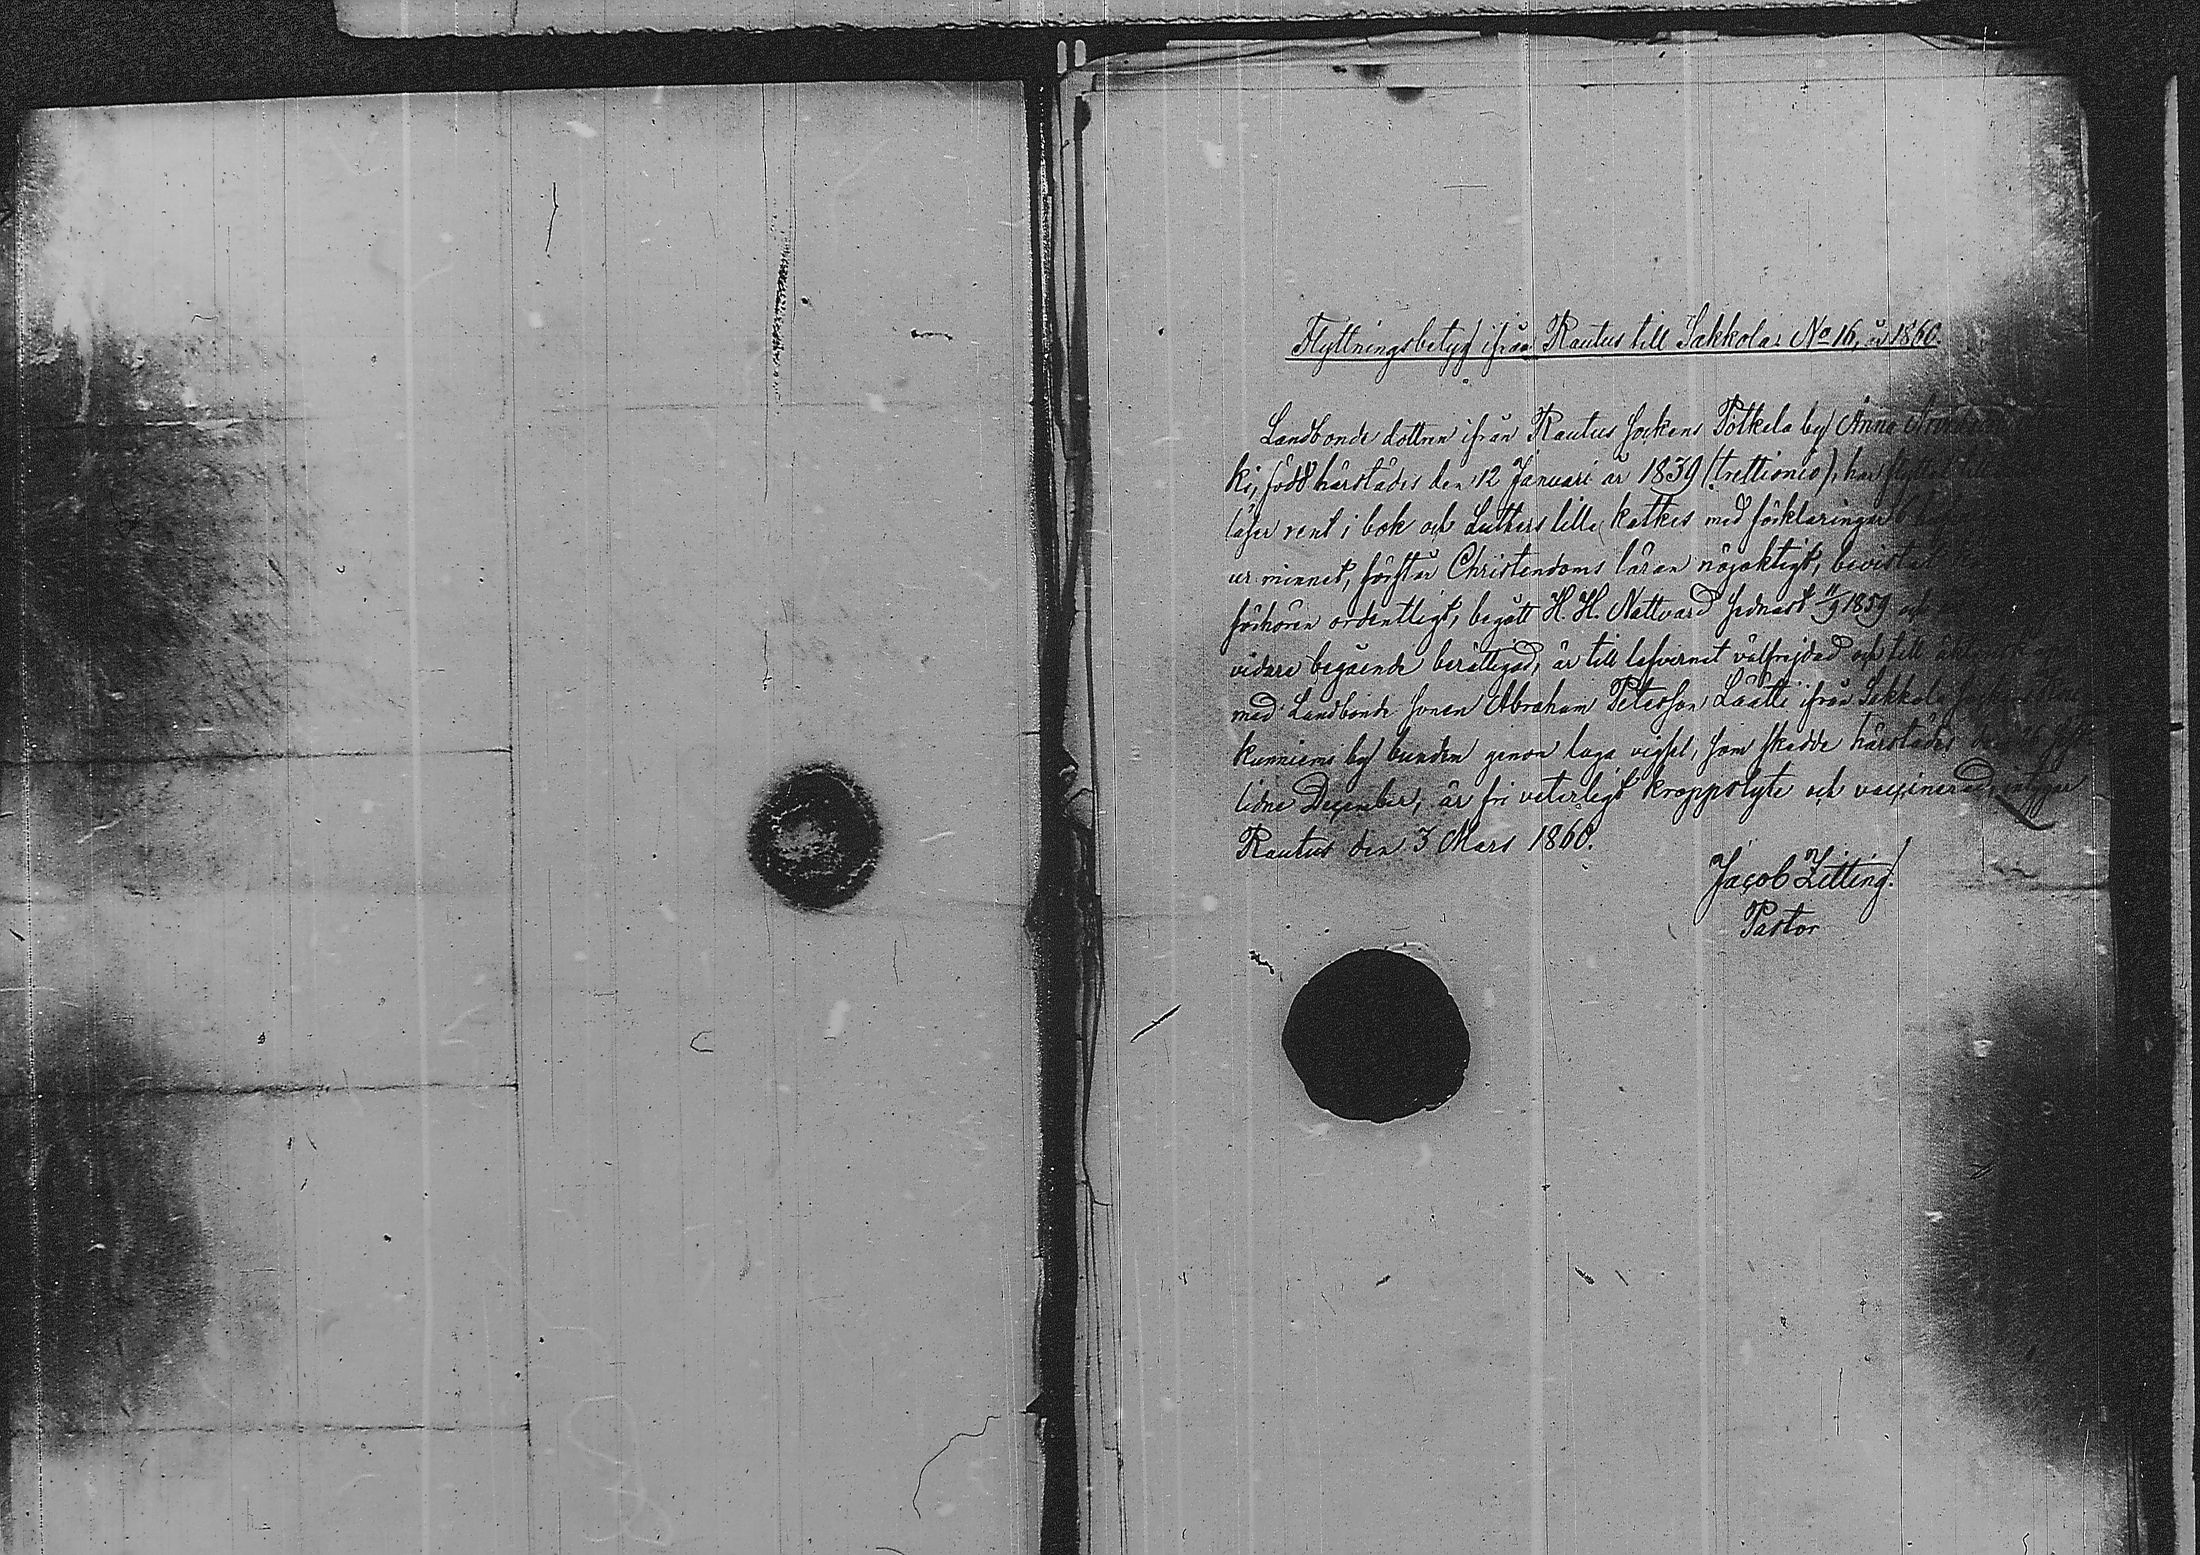 Flyttningsbetyg ifrån Rautus till Sakkola. No 16, år 1860.
Landbonde dottren ifrån Rautus sockens Potkela by Anna
ki, född härstädes den 12 Januari år 1839 (trettionio), har
läser rent i bok och Luthers lilla katkes med förklaringar
ur minnet, förstår Christendoms läran nöjaktigt, bevistat
förhören ordentligt, begått H. H. Nattvard sednast 11/9 1859 och
vidare begående berättigad, är till lefvernet välfrejdad och till
med Landbonde sonen Abraham Petersson Läätti ifrån Sakkola
kunniemi by bunden genom laga vigsel, som skedde härstädes den 26 sist
lidne December, är fri veterligt kroppslyte och vaccinerad, intygar
Rautus den 3 Mars 1860.
Jacob Zitting.
Pastor